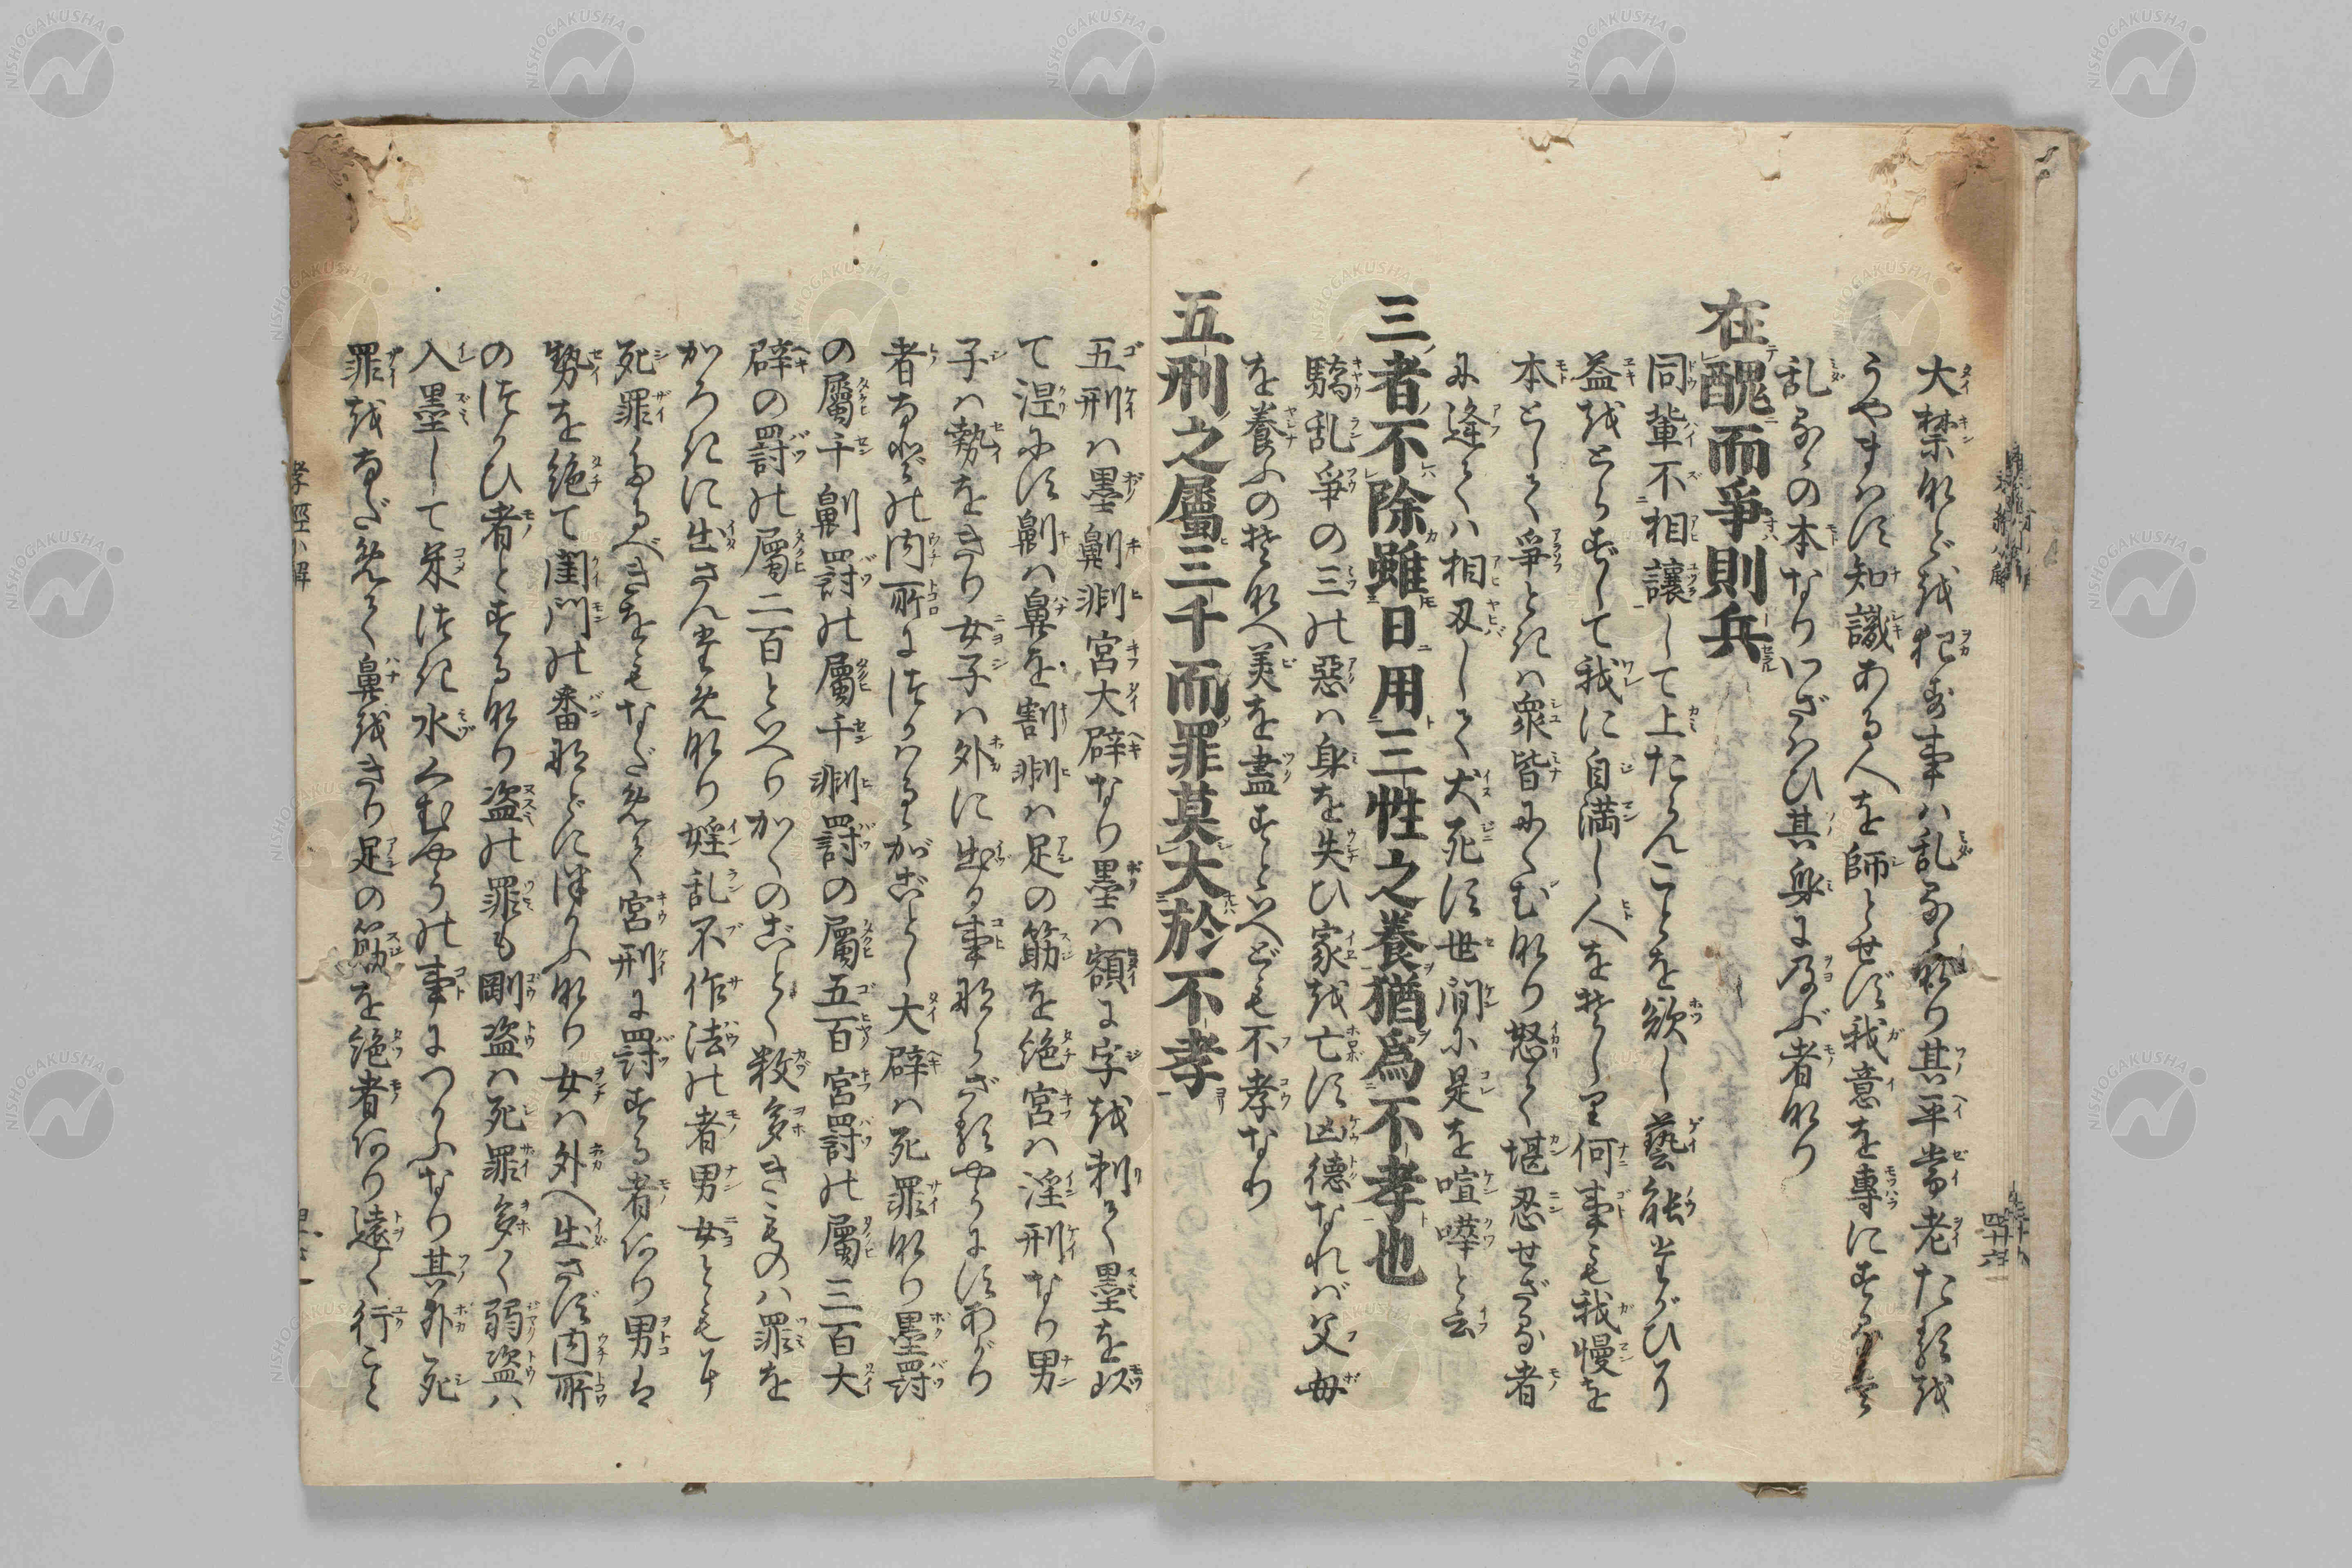 大禁などを犯す事ハ乱るゝなり其平常老たるを
うやまハず知識ある人を師とせず我意を專にする
乱るゝの本なりわざハひ其身に及ぶ者なり
在醜而爭則兵
同輩不相讓して上たらんことを欲し藝能
益をとらずして我に自満し人をそしり何事も我慢を
本として爭ときハ衆皆にくむなり怒て堪忍せざる者
に逢てハ相刄して犬死す世間に是を喧嘩と云
三者不除雖日用三牲之養猶爲不孝也
驕乱爭の三の惡ハ身を失ひ家を亡す凶德なれバ父母
を養ふのそなへ美を盡すといへども不孝なり
五刑之屬三千而罪莫大於不孝
五刑ハ墨劓剕宮大辟なり墨ハ額に字を刺て墨を以
て涅にす劓ハ鼻を割剕ハ足の筋を絶宮ハ淫刑なり男
子ハ勢をきり女子ハ外に出る事ならざるやうにすあがり
者なれバ内所につかはるゝがごとし大辟ハ死罪なり墨罸
の屬千劓罸の屬千剕罸の屬五百宮罸の屬三百大
辟の罸の屬二百といへりかくのごとく数多きものハ罪を
かろきに出さんためなり婬乱不作法の者男女ともに
死罪たるべきをもなだめて宮刑に罸する者あり男は
勢を絶て閨門の番などにつかふなり女ハ外へ出さず内所
のつかひ者とするなり盗の罪も剛盗ハ死罪多く弱盗ハ
入墨して米つき水くむやうの事につかふなり其外死
罪をなだめて鼻をきり足の筋を絶者あり遠く行こと
孝經小解